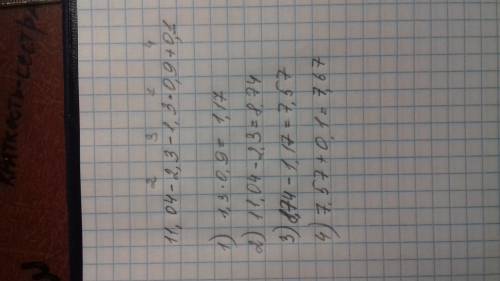 2 3 1 4
11,04-2,3-1,3·0,9+0,1
1) 1,3·0,9=1,17
2) 11,04-2,3=8,74
3) 8,74-1,17=7,57
4) 7,57+0,1=7,67